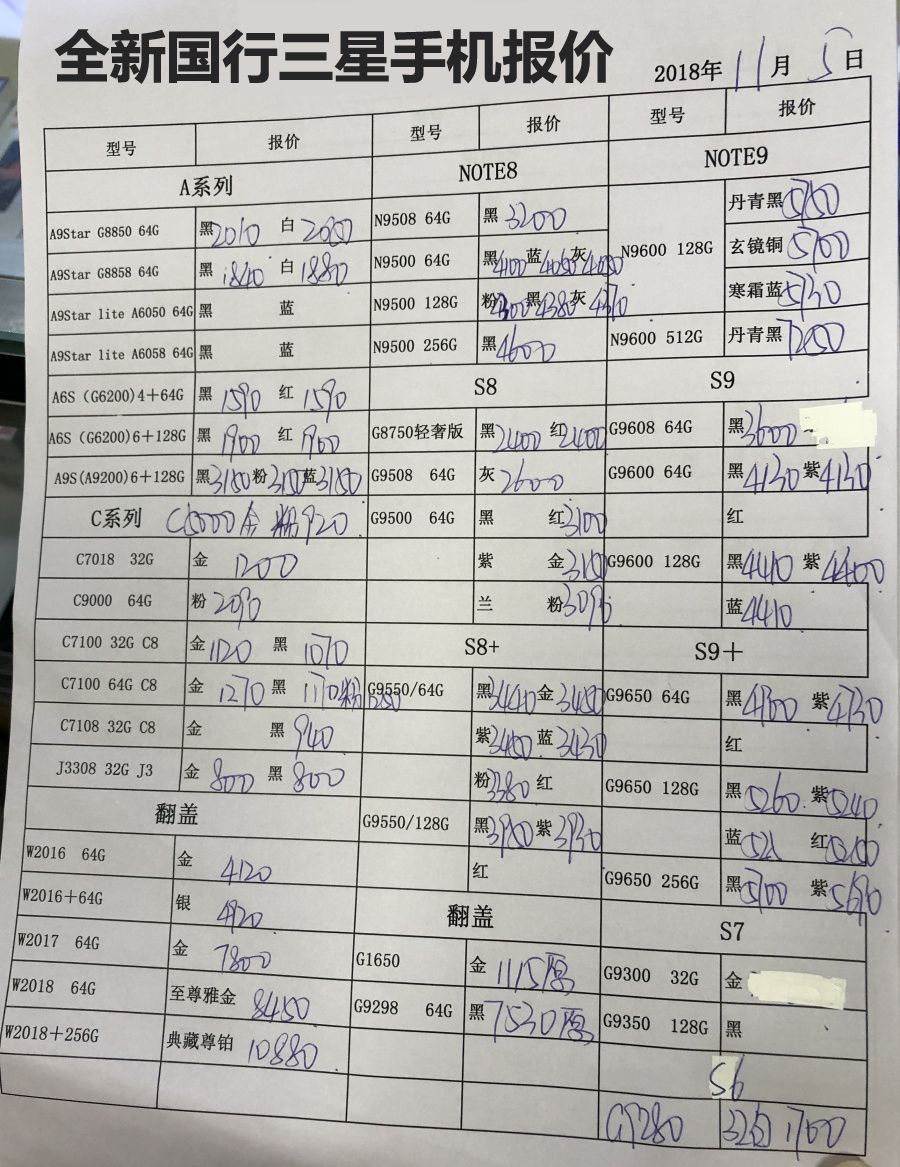 全新国行三星手机报价
2018年 11月 5日
型号 报价 型号 报价 型号 报价
A系列 NOTE8 NOTE9
A9Star G8850 64G 黑2010 白2050 N9508 64G 黑3200 N9600 128G 丹青黑5150
A9Star G8858 64G 黑1840 白1880 N9500 64G 黑4100 蓝4050 灰4050 玄镜铜5100
A9Star lite A6050 64G 黑 蓝 N9500 128G 粉4300 黑4380 灰4370 寒霜蓝5130
A9Star lite A6058 64G 黑 蓝 N9500 256G 黑4600 N9600 512G 丹青黑7250
A6S（G6200)4＋64G 黑1590 红1590 S8 S9
A6S（G6200)6＋128G 黑1900 红1900 G8750轻奢版 黑2400 红2400 G9608 64G 黑3600
A9S(A9200)6＋128G 黑3150 粉3150 蓝3150 G9508 64G 灰2600 G9600 64G 黑4130 紫4130
C系列 C5000 金 粉920 G9500 64G 黑 红3100 红
C7018 32G 金1200 紫 金3150 G9600 128G 黑4410 紫4400
C9000 64G 粉2090 兰 粉3090 蓝4410
C7100 32G C8 金1120 黑1070 S8+ S9＋
C7100 64G C8 金1270 黑1170 粉1250 G9550/64G 黑3440 金3450 G9650 64G 黑4700 紫4730
C7108 32G C8 金 黑940 紫3400 蓝3430 红
J3308 32G J3 金800 黑800 粉3380 红 G9650 128G 黑5260 紫5240
翻盖 G9550/128G 黑3950 紫3930 蓝 红5250
W2016 64G 金4120 红 G9650 256G 黑5700 紫5690
W2016＋64G 银4920 翻盖 S7
W2017 64G 金7800 G1650 金1115原 G9300 32G 金
W2018 64G 至尊雅金8450 G9298 64G 黑7530原 G9350 128G 黑
W2018＋256G 典藏尊铂10880 S6
G9280 32G 1700